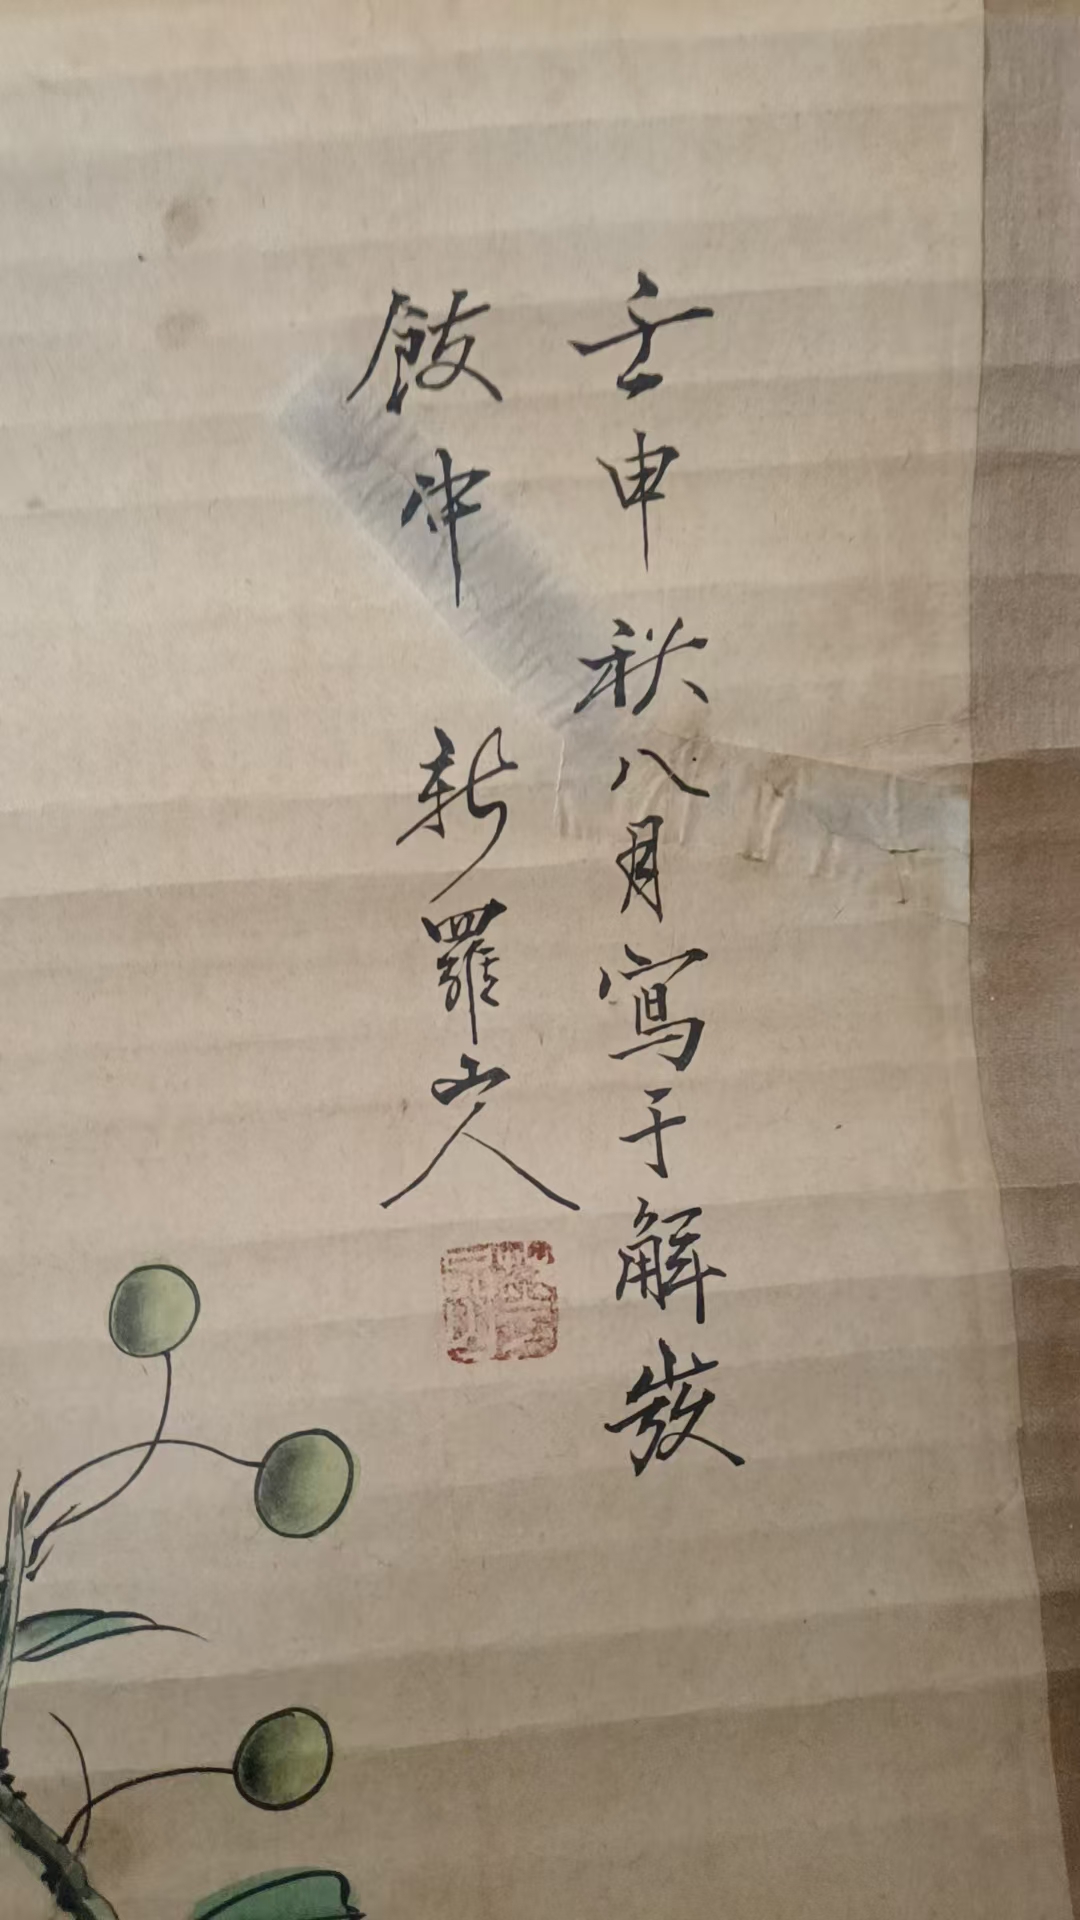 壬申秋八月寫于解發
新羅山人